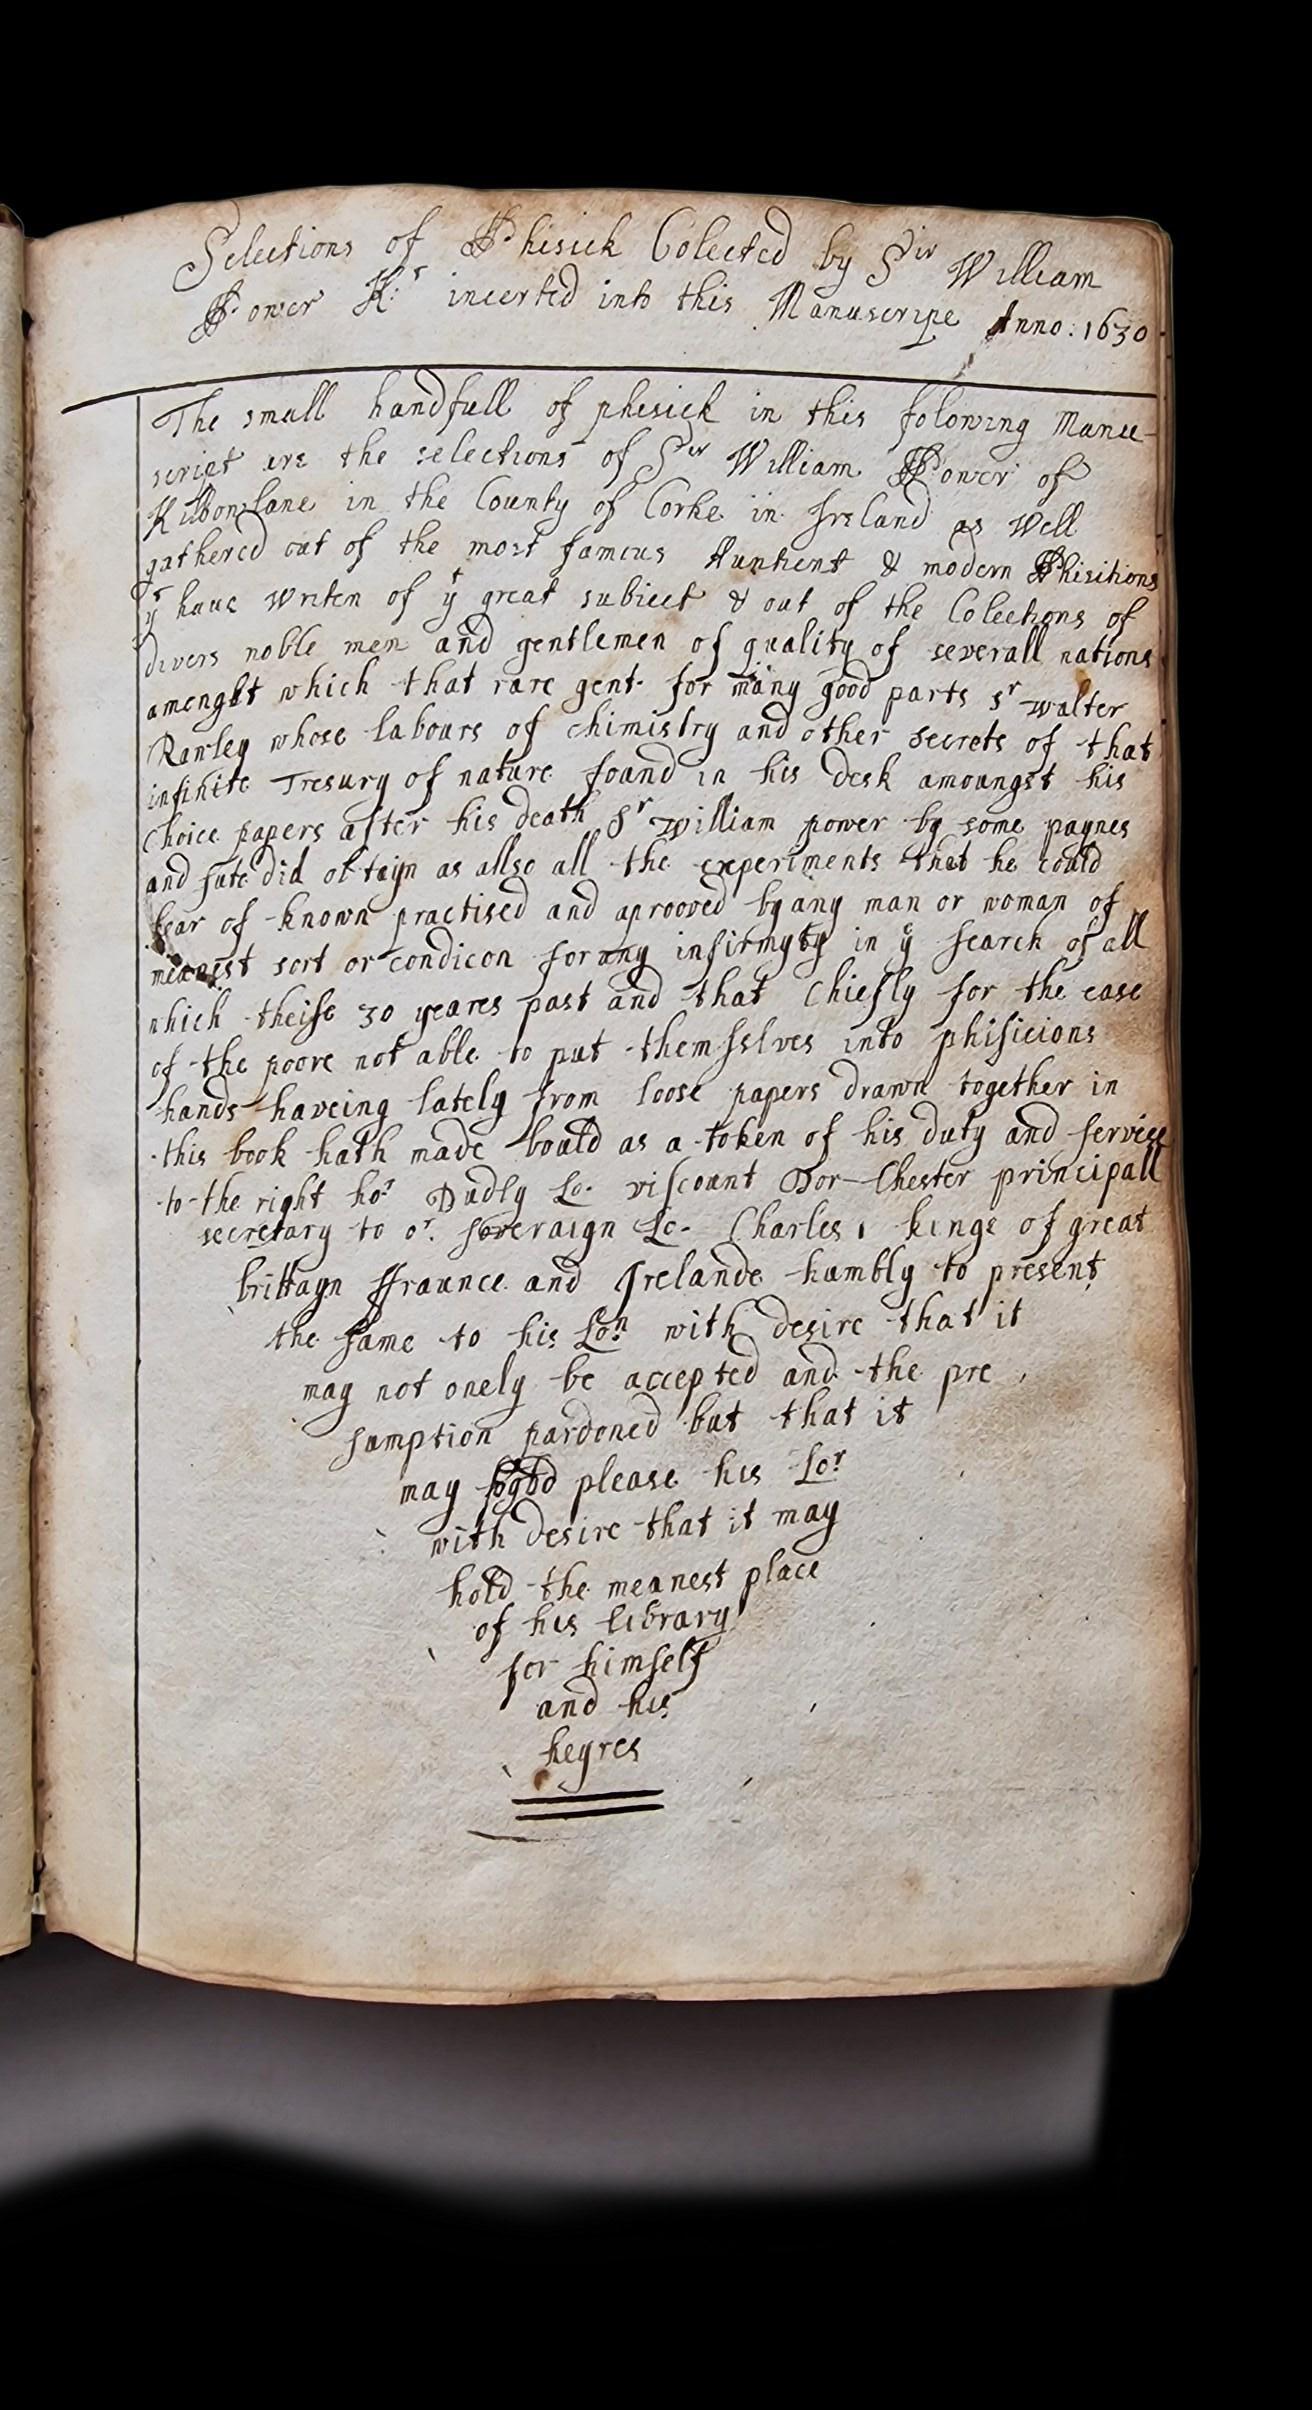 Selections of Phisick Colected by Sir William
Power K:t incerted into this Manuscripe Anno: 1630
The small handfull of phisick in this folowing Manu-
script are the selections of Sir William Power of
Kilbonlane in the County of Corke in Ireland as Well
gathered out of the most famous Auntient & modern Phisitions
yt haue writen of yt great subiect & out of the Colections of
divers noble men and gentlemen of quality of severall nations
amengst which that rare gent. for many good parts sr walter
Rawley whose labours of chimistry and other secrets of that
infinite Tresury of nature found in his desk amoungst his
Choice papers after his death Sr william power by some paynes
and fate did obtayn as allso all the experiments that he could
hear of known practised and aprooved by any man or woman of
meanest sort or condicon for any infirmyty in ye search of all
which theise 30 yeares past and that Chiefly for the ease
of the poore not able to put themselves into phisicions
hands haveing lately from loose papers drawn together in
this book hath made bould as a token of his duty and servise
to the right hor Dudly Lo. viscount Dor-Chester principall
secretary to or. soveraign Lo. Charles 1 kinge of great
brittayn ffraunce and Irelande humbly to present
the same to his Lon with desire that it
may not onely be accepted and the pre
sumption pardoned but that it
may please his Lor
with desire that it may
hold the meanest place
of his library
for himself
and his
heyres